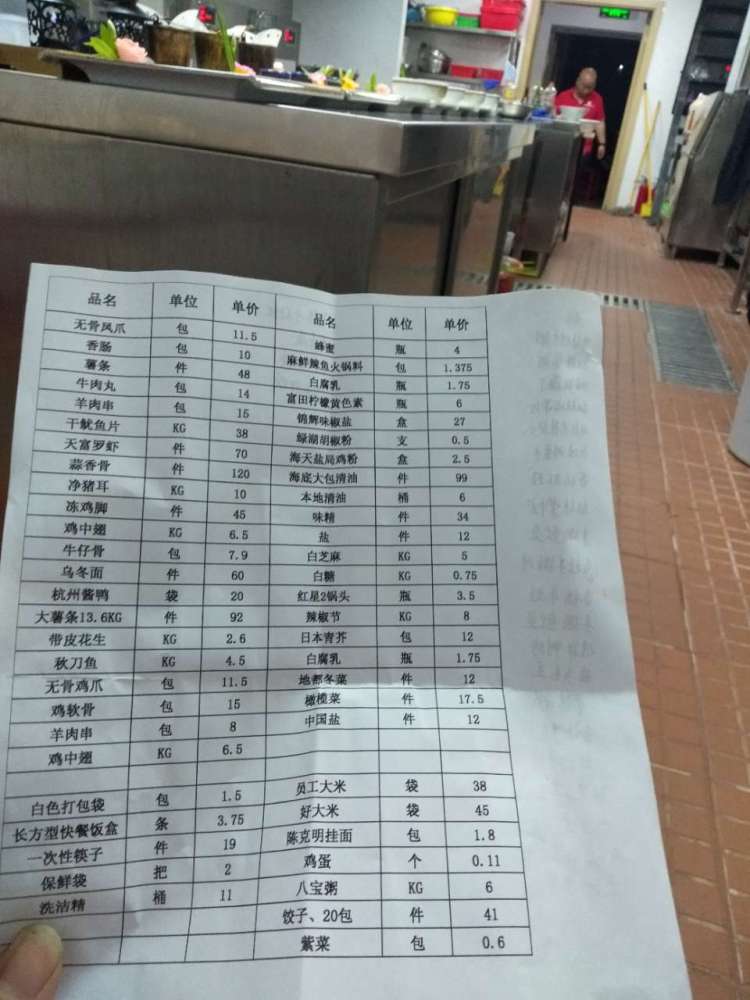 品名 单位 单价 品名 单位 单价
无骨凤爪 包 11.5 蜂蜜 瓶 4
香肠 包 10 麻鲜辣鱼火锅料 包 1.375
薯条 件 48 白腐乳 瓶 1.75
牛肉丸 包 14 富田柠檬黄色素 瓶 6
羊肉串 包 15 锦辉味椒盐 盒 27
干鱿鱼片 KG 38 绿湖胡椒粉 支 0.5
天富罗虾 件 70 海天盐局鸡粉 盒 2.5
蒜香骨 件 120 海底大包清油 件 99
净猪耳 KG 10 本地清油 桶 6
冻鸡脚 件 45 味精 件 34
鸡中翅 KG 6.5 盐 件 12
牛仔骨 包 7.9 白芝麻 KG 5
乌冬面 件 60 白糖 KG 0.75
杭州酱鸭 袋 20 红星2锅头 瓶 3.5
大薯条13.6KG 件 92 辣椒节 KG 8
带皮花生 KG 2.6 日本青芥 包 12
秋刀鱼 KG 4.5 白腐乳 瓶 1.75
无骨鸡爪 包 11.5 地都冬菜 件 12
鸡软骨 包 15 橄榄菜 件 17.5
羊肉串 包 8 中国盐 件 12
鸡中翅 KG 6.5
员工大米 袋 38
白色打包袋 包 1.5 好大米 袋 45
长方型快餐饭盒 条 3.75 陈克明挂面 包 1.8
一次性筷子 件 19 鸡蛋 个 0.11
保鲜袋 把 2 八宝粥 KG 6
洗洁精 桶 11 饺子、20包 件 41
紫菜 包 0.6